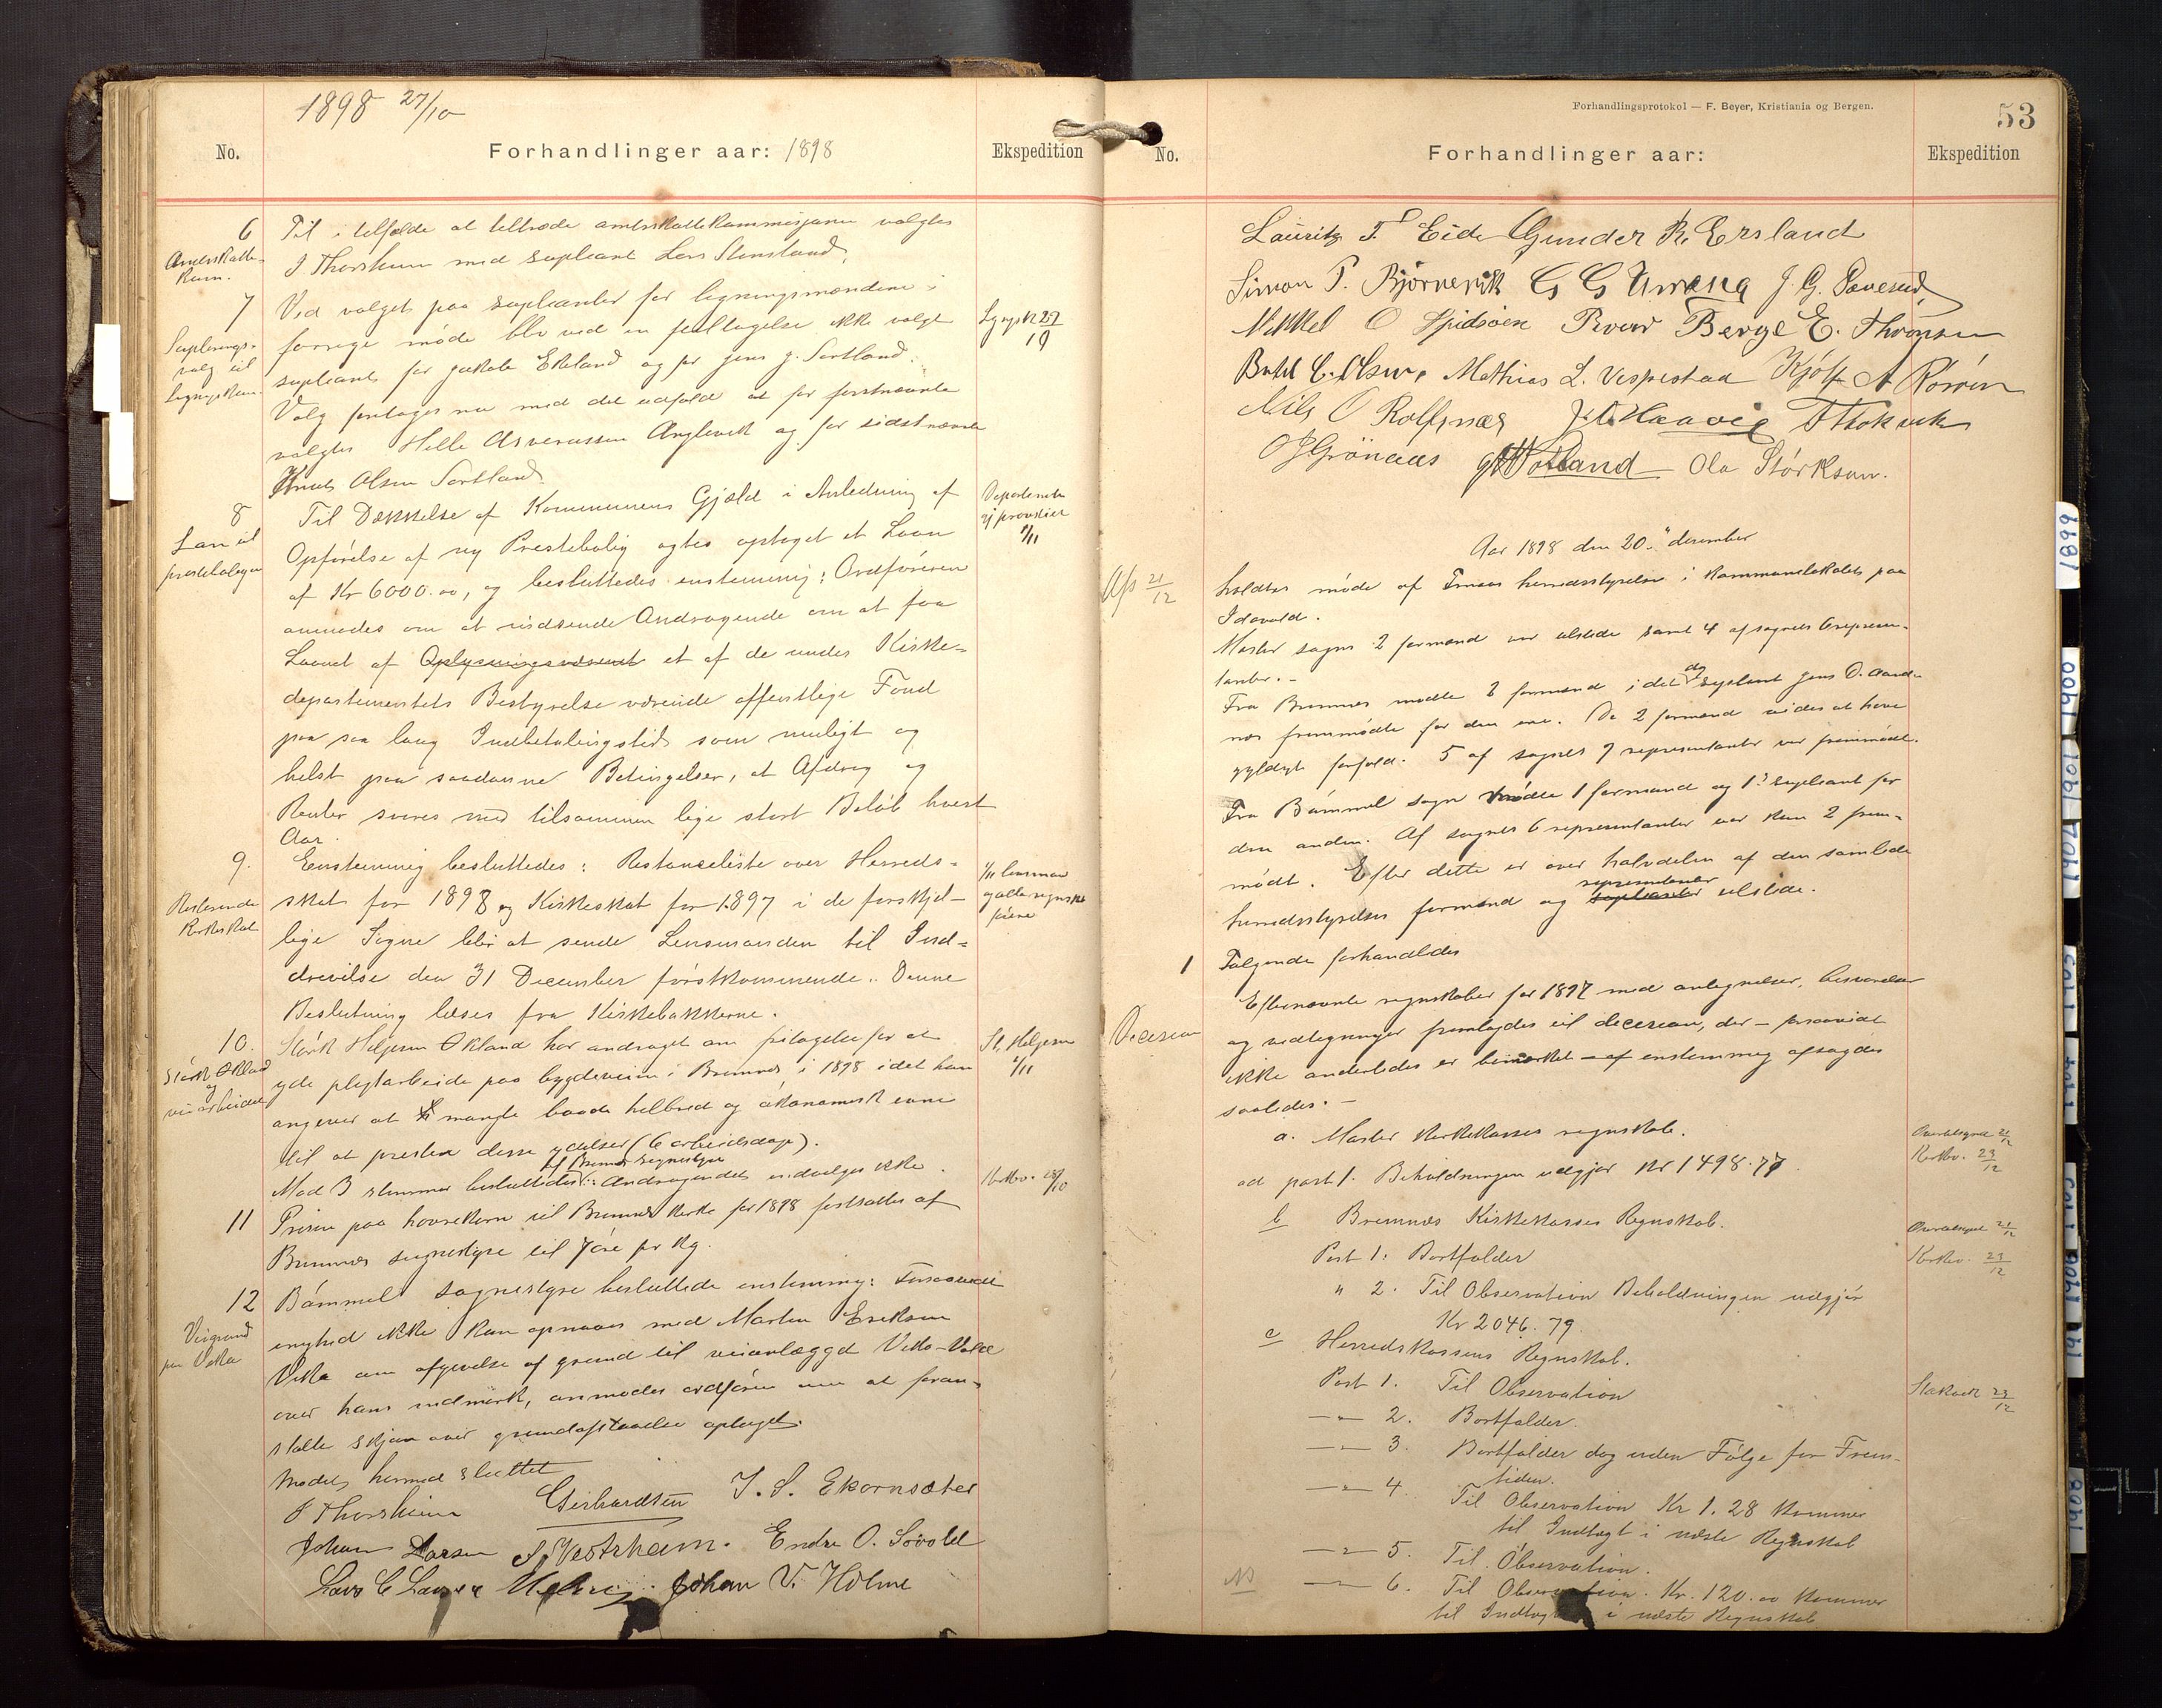 1898 27/10
No.
Forhandlinger aar: 1898
Ekspedition
6
Amtsskatte-
kom.
Til i tilfælde at tiltræde amtsskattekommisjonen valgtes
J Thorsheim med supleant Lars Stensland.
7
Suplerings-
valg til
Lignings kom.
Ved valget paa supleanter for ligningsmændene i
forrige møde blev ved en feiltagelse ikke valgt
supleant for Jakob Ekeland og for Jens J. Sortland.
Valg foretages nu med det udfald at for førstnævnte
valgtes Helle Asmussen Anglevik og for sidstnævnte
Knut Olsen Sortland.
27/10
8
Laan til
prestebolig
Til Dækkelse af Kommunens Gjæld i Anledning af
Opførelse af ny Prestebolig agtes optaget et Laan
af Kr 6000.00, og besluttedes enstemmig: Ordføreren
anmodes om at indsende Andragende om at faa
Laanet af Oplysningsvæsenet et af de under Kirke-
departementets Bestyrelse værende offentlige Fond
paa saa lang Indbetalingstid som muligt og
helst paa saadanne Betingelser, at Afdrag og
Renter svares med tilsammen lige stort Beløb hvert
Aar.
Departementet
gj provstiet
1/11
9.
Resterende
Kirkeskat
Enstemmig besluttedes: Restanceliste over Herreds-
skat for 1898 og Kirkeskat for 1897 i de forskjel-
lige Sogne blir at sende Lensmanden til Ind-
drivelse den 31 December førstkommende. Denne
Beslutning læses fra Kirkebakkerne.
1/11 lensmand
og alle regnsk
førere
10.
Størk Økland
og
veiarbeidet
Størk Helgesen Økland har andraget om fritagelse for at
yde pligtarbeide paa bygdeveiene i Bremnes i 1898 idet han
angiver at mangle baade helbred og økonomisk evne
til at prestere disse ydelser (6 arbeidsdage).
af Bremnes sognestyre
Mod 3 stemmer besluttedes: Andragendet indvilges ikke.
St. Helgesen
1/11
11
Prisen paa havrekorn til Bremnes kirke for 1898 fastsattes af
Bremnes sognestyre til 7 øre pr kg.
Kirkev. 28/10
12
Veigrund
paa Vika
Bømmel sognestyre besluttede enstemmig: Forsaavidt
enighed ikke kan opnaaes med Martin Eriksen
Vika om afgivelse af grund til veianlægget Vika-Vold
over hans indmark, anmodes ordføren om at foran-
stalte skjøn over grundafstaaelse optaget.
Mødet hermed sluttet
J Thorsheim Gerhardsen J. S. Ekornsæter
Johan Larsen S. Vestrheim. Endre O. Søvold
Lars C Larsen Johan V. Holme
Forhandlingsprotokol — F. Beyer, Kristiania og Bergen.
53
No.
Forhandlinger aar:
Ekspedition
Lauritz T. Eide Gunder R. Ersland
Simon P. Bjørnevik G G Urang J. G.
Mikkel O Spidsøen Berge E. Thronsen
C. Olsen, Mathias L. Vespestad A Rørøen
Nils O Rolfsnæs Haavig T Stokvik
O J Grønaas Ola Størksen.
Aar 1898 den 20. december
21/12
holdtes møde af Finaas herredsstyrelse i kommunelokalet paa
Idavold.
Moster sogns 2 formænd var tilstede samt 4 af sognets 6 represen-
tanter. -
Fra Bremnes mødte 2 formænd, idet supleant Jens O. Aard-
næs fremmødte for den ene. De 2 formænd vides at have
gyldigt forfald. 5 af sognets 9 representanter var fremmødt.
Fra Bømmel sogn mødte 1 formand og 1. supleant for
den anden. Af sognets 6 representanter var kun 2 frem-
mødt. Efter dette er over halvdelen af den samlede
representanter
herredsstyrelses formænd og supleanter tilstede.
Følgende forhandledes
1
Decision
Efternævnte regnskaber for 1897 med antegnelser, besvarelser
og vedtegninger fremlagdes til decision, der - forsaavidt
ikke anderledes er bemærket - af enstemmig afsagdes
saaledes. -
a. Moster kirkekasses regnskab.
ad post 1. Beholdningen udgjør Kr 1498.77
21/12
Kirkev. 23/12
b Bremnæs Kirkekasses Regnskab.
Post 1. Bortfalder
" 2. Til Observation Beholdningen udgjør
Kr 2046.79.
21/12
Kirkev. 23/12
c Herredskassens Regnskab.
Post 1. Til Observation
Stokvik 23/12
—"— 2. Bortfalder.
—"— 3. Bortfalder dog uden Følge for Frem-
tiden.
—"— 4. Til Observation Kr 1.28 kommer
til Indtægt i næste Regnskab
—"— 5. Til Observation.
NB —"— 6. Til Observation. Kr. 120.00 kommer
til Indtægt i næste Regnskab
1899
1900
1901
1902
1903
1904
1905
1906
1907
1908